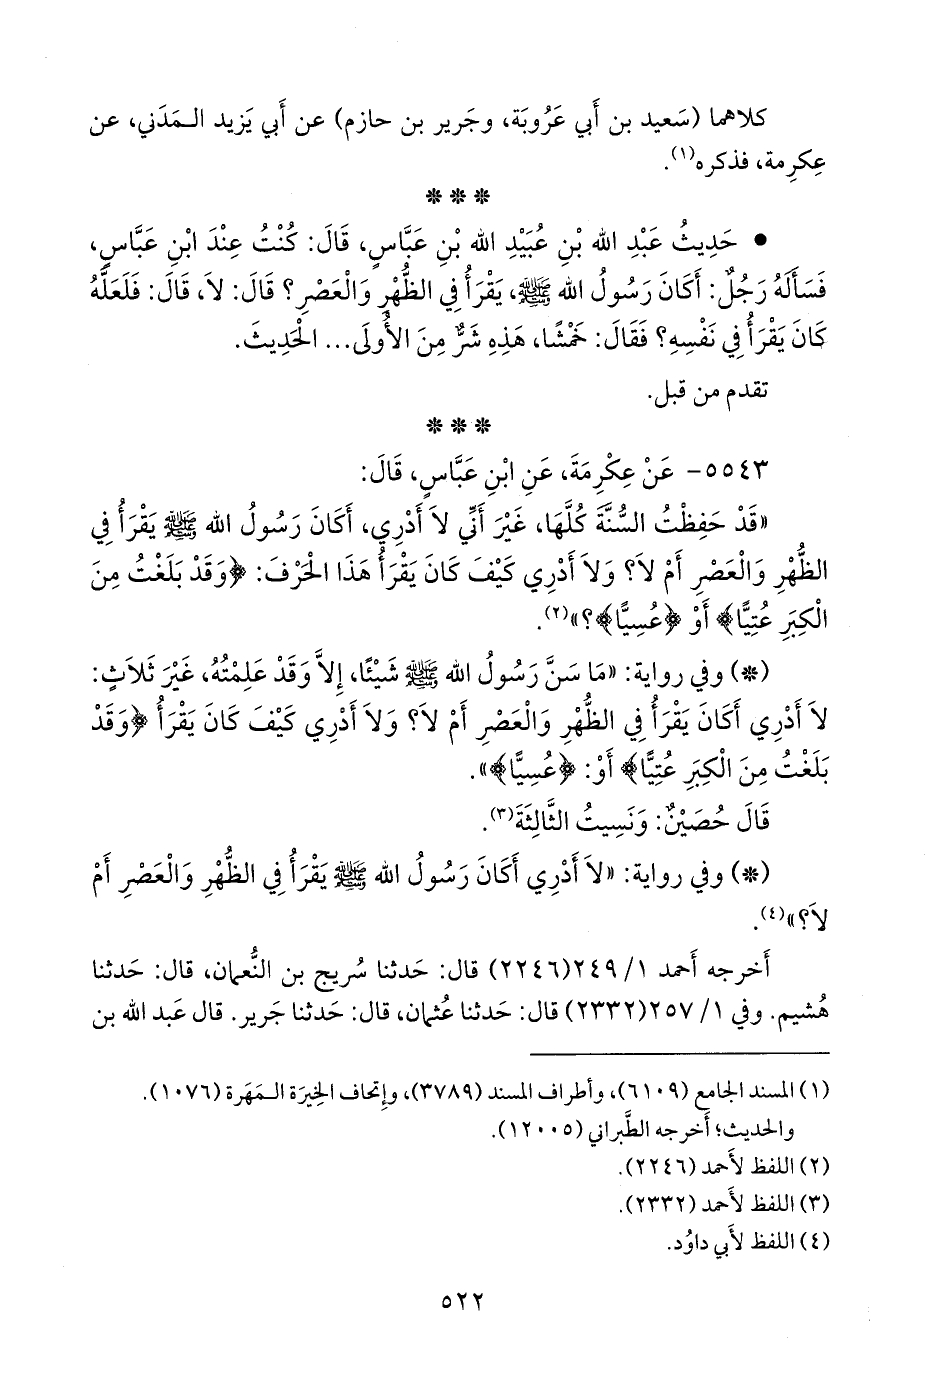 كلاهما (سَعيد بن أَبي عَرُوبَة، وجَرير بن حازم) عن أَبي يَزيد الـمَدَني، عن
عِكرِمة، فذكره(١).
* * *
• حَدِيثُ عَبْدِ الله بْنِ عُبَيْدِ الله بْنِ عَبَّاسٍ، قَالَ: كُنْتُ عِنْدَ ابْنِ عَبَّاسٍ،
فَسَأَلَهُ رَجُلٌ: أَكَانَ رَسُولُ الله ﷺ، يَقْرَأُ فِي الظُّهْرِ وَالْعَصْرِ؟ قَالَ: لاَ، قَالَ: فَلَعَلَّهُ
كَانَ يَقْرَأُ فِي نَفْسِهِ؟ فَقَالَ: خَمْشًا، هَذِهِ شَرٌّ مِنَ الأُولَى... الْحَدِيثَ.
تقدم من قبل.
* * *
٥٥٤٣- عَنْ عِكْرِمَةَ، عَنِ ابْنِ عَبَّاسٍ، قَالَ:
«قَدْ حَفِظْتُ السُّنَّةَ كُلَّهَا، غَيْرَ أَنِّي لاَ أَدْرِي، أَكَانَ رَسُولُ الله ﷺ يَقْرَأُ فِي
الظُّهْرِ وَالْعَصْرِ أَمْ لاَ؟ وَلاَ أَدْرِي كَيْفَ كَانَ يَقْرَأُ هَذَا الْحَرْفَ: ﴿وَقَدْ بَلَغْتُ مِنَ
الْكِبَرِ عُتِيًّا﴾ أَوْ ﴿عُسِيًّا﴾؟»(٢).
(*) وفي رواية: «مَا سَنَّ رَسُولُ الله ﷺ شَيْئًا، إِلاَّ وَقَدْ عَلِمْتُهُ، غَيْرَ ثَلاَثٍ:
لاَ أَدْرِي أَكَانَ يَقْرَأُ فِي الظُّهْرِ وَالْعَصْرِ أَمْ لاَ؟ وَلاَ أَدْرِي كَيْفَ كَانَ يَقْرَأُ ﴿وَقَدْ
بَلَغْتُ مِنَ الْكِبَرِ عُتِيًّا﴾ أَوْ: ﴿عُسِيًّا﴾».
قَالَ حُصَيْنٌ: وَنَسِيتُ الثَّالِثَةَ(٣).
(*) وفي رواية: «لاَ أَدْرِي أَكَانَ رَسُولُ الله ﷺ يَقْرَأُ فِي الظُّهْرِ وَالْعَصْرِ أَمْ
لاَ؟»(٤).
أَخرجه أَحمد ١/ ٢٤٩(٢٢٤٦) قال: حَدثنا سُريج بن النُّعمان، قال: حَدثنا
هُشيم. وفي ١/ ٢٥٧(٢٣٣٢) قال: حَدثنا عُثمان، قال: حَدثنا جَرير. قال عَبد الله بن
(١) المسند الجامع (٦١٠٩)، وأطراف المسند (٣٧٨٩)، وإتحاف الخِيرَة الـمَهَرة (١٠٧٦).
والحديث؛ أخرجه الطَّبراني (١٢٠٠٥).
(٢) اللفظ لأَحمد (٢٢٤٦).
(٣) اللفظ لأَحمد (٢٣٣٢).
(٤) اللفظ لأَبي داوُد.
٥٢٢